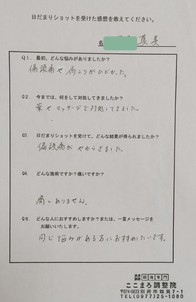 日だまりショットを受けた感想を教えてください。
名 真美
Q1. 最初、どんな悩みがありましたか?
偏頭痛や肩こりがひどかった。
Q2. 今までは、何をして対処してきましたか?
薬やマッサージで対処してきました。
Q3. 日だまりショットを受けて、どんな結果が得られましたか?
偏頭痛がやわらぎました。
Q4. どんな施術ですか?痛いですか?
痛くありません。
Q5. どんな人におすすめしますか?または、一言メッセージを
お願いいたします。
同じ悩みがある方におすすめしたいです。
ここまろ調整院